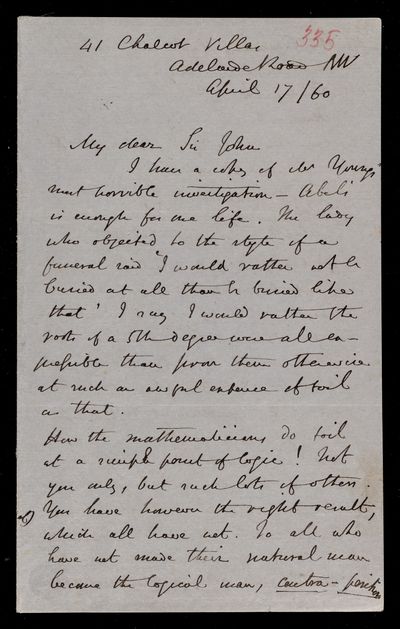 335
41 Chalcot Villas
Adelaide Road NW
April 17/60
My dear Sir John
I have a copy of Mr Young's
most horrible investigation – Abel's
is enough for one life. The lady
who objected to the style of a
funeral said "I would rather not be
buried at all than be buried like
that" I say I would rather the
roots of a 5th degree were all im-
possible than prove them otherwise
at such an awful expense of toil
as that.
How the mathematicians do toil
at a simple point of logic! Not
you only, but such lots of others.
You have however the right result,
which all have not. To all who
have not made their natural man
become the logical man, contra-position